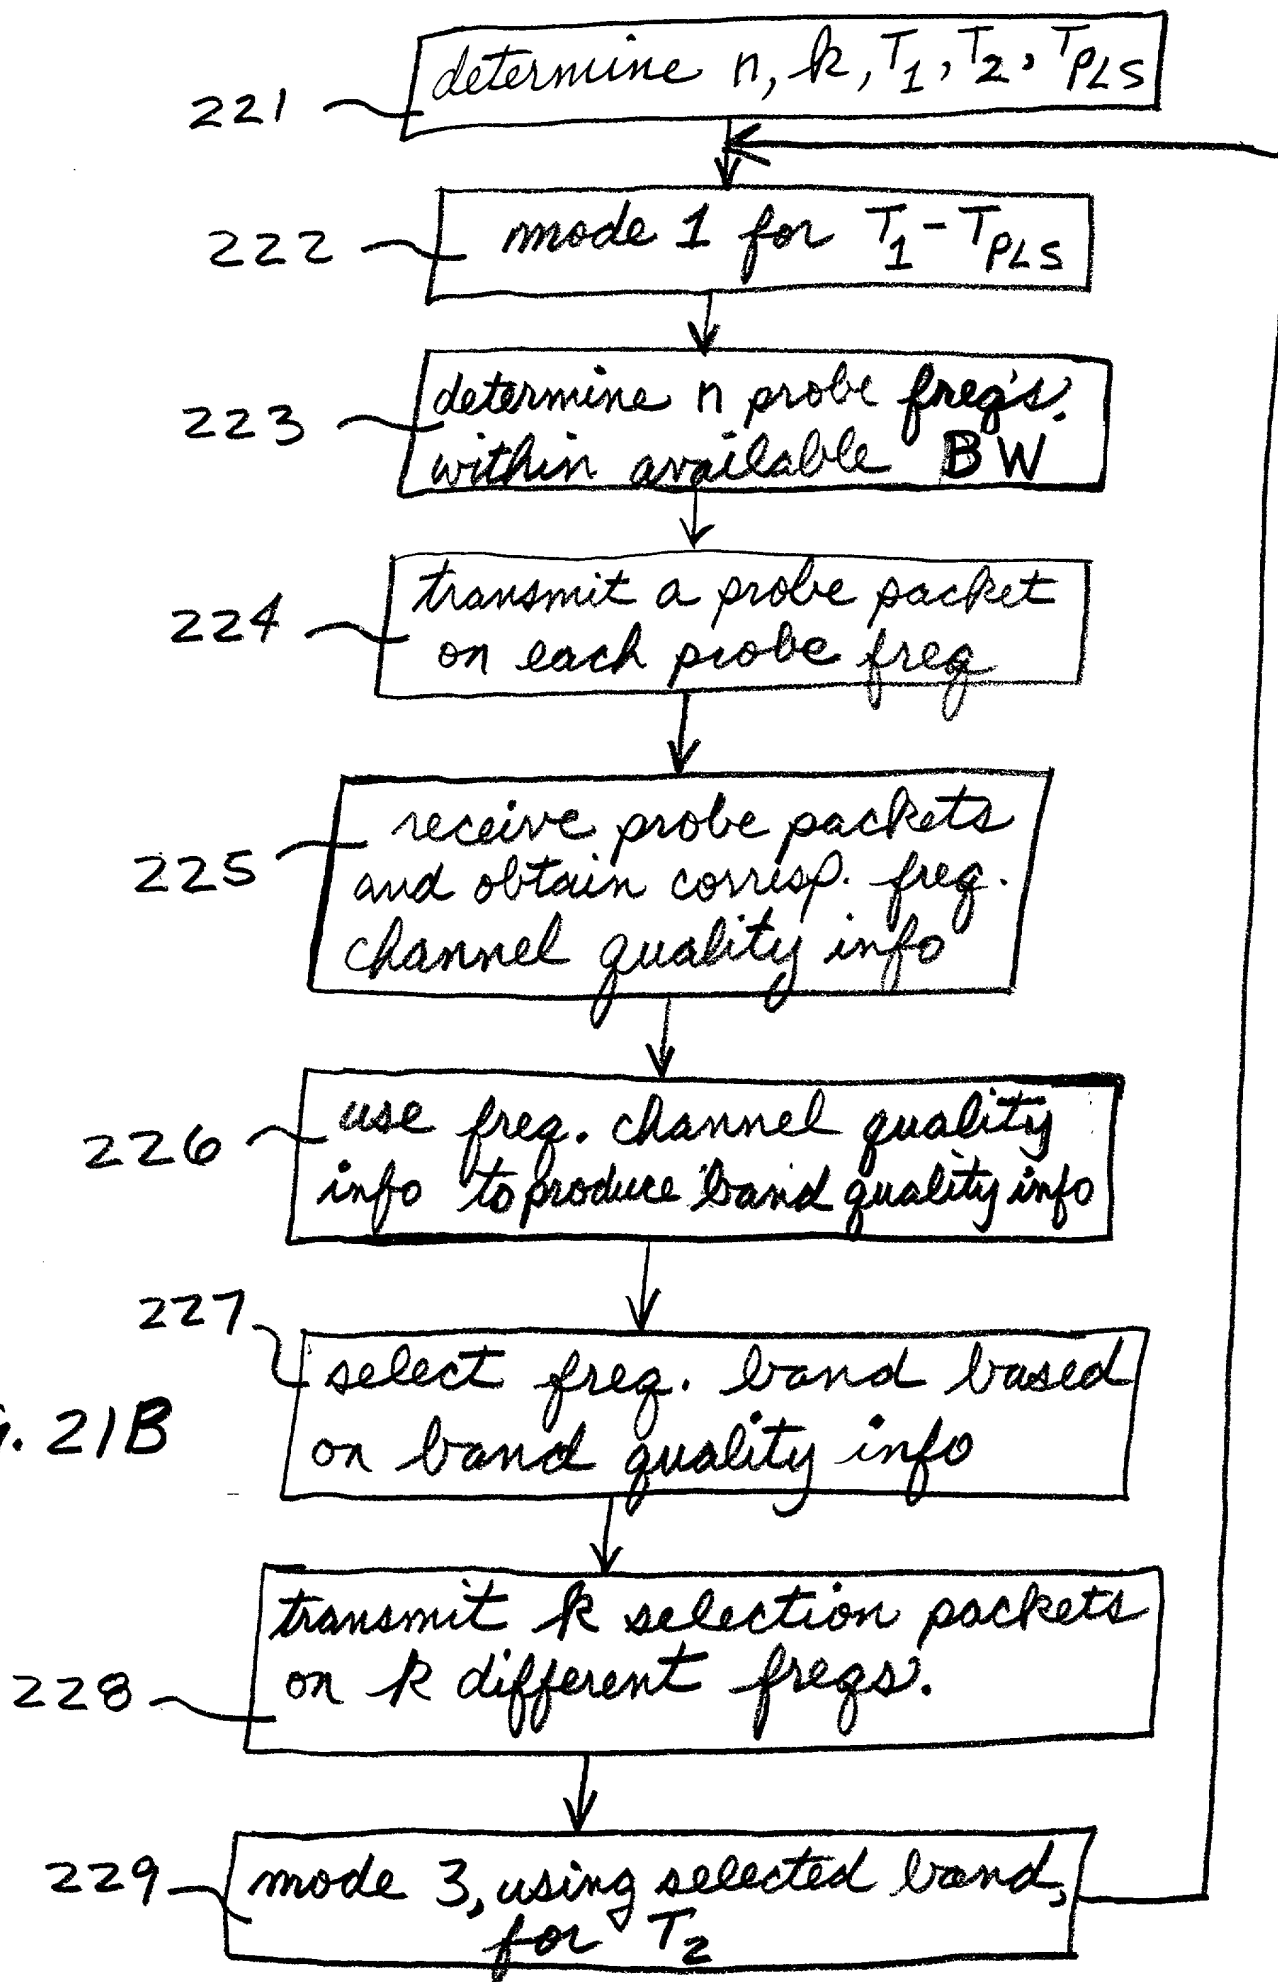 221
determine n, k, T1, T2, TPLS
222
mode 1 for T1 - TPLS
223
determine n probe freq's.
within available BW
224
transmit a probe packet
on each probe freq
225
receive probe packets
and obtain corresp. freq.
channel quality info
226
use freq. channel quality
info to produce band quality info
227
select freq. band based
on band quality info
. 21B
228
transmit k selection packets
on k different freqs.
229
mode 3, using selected band,
for T2